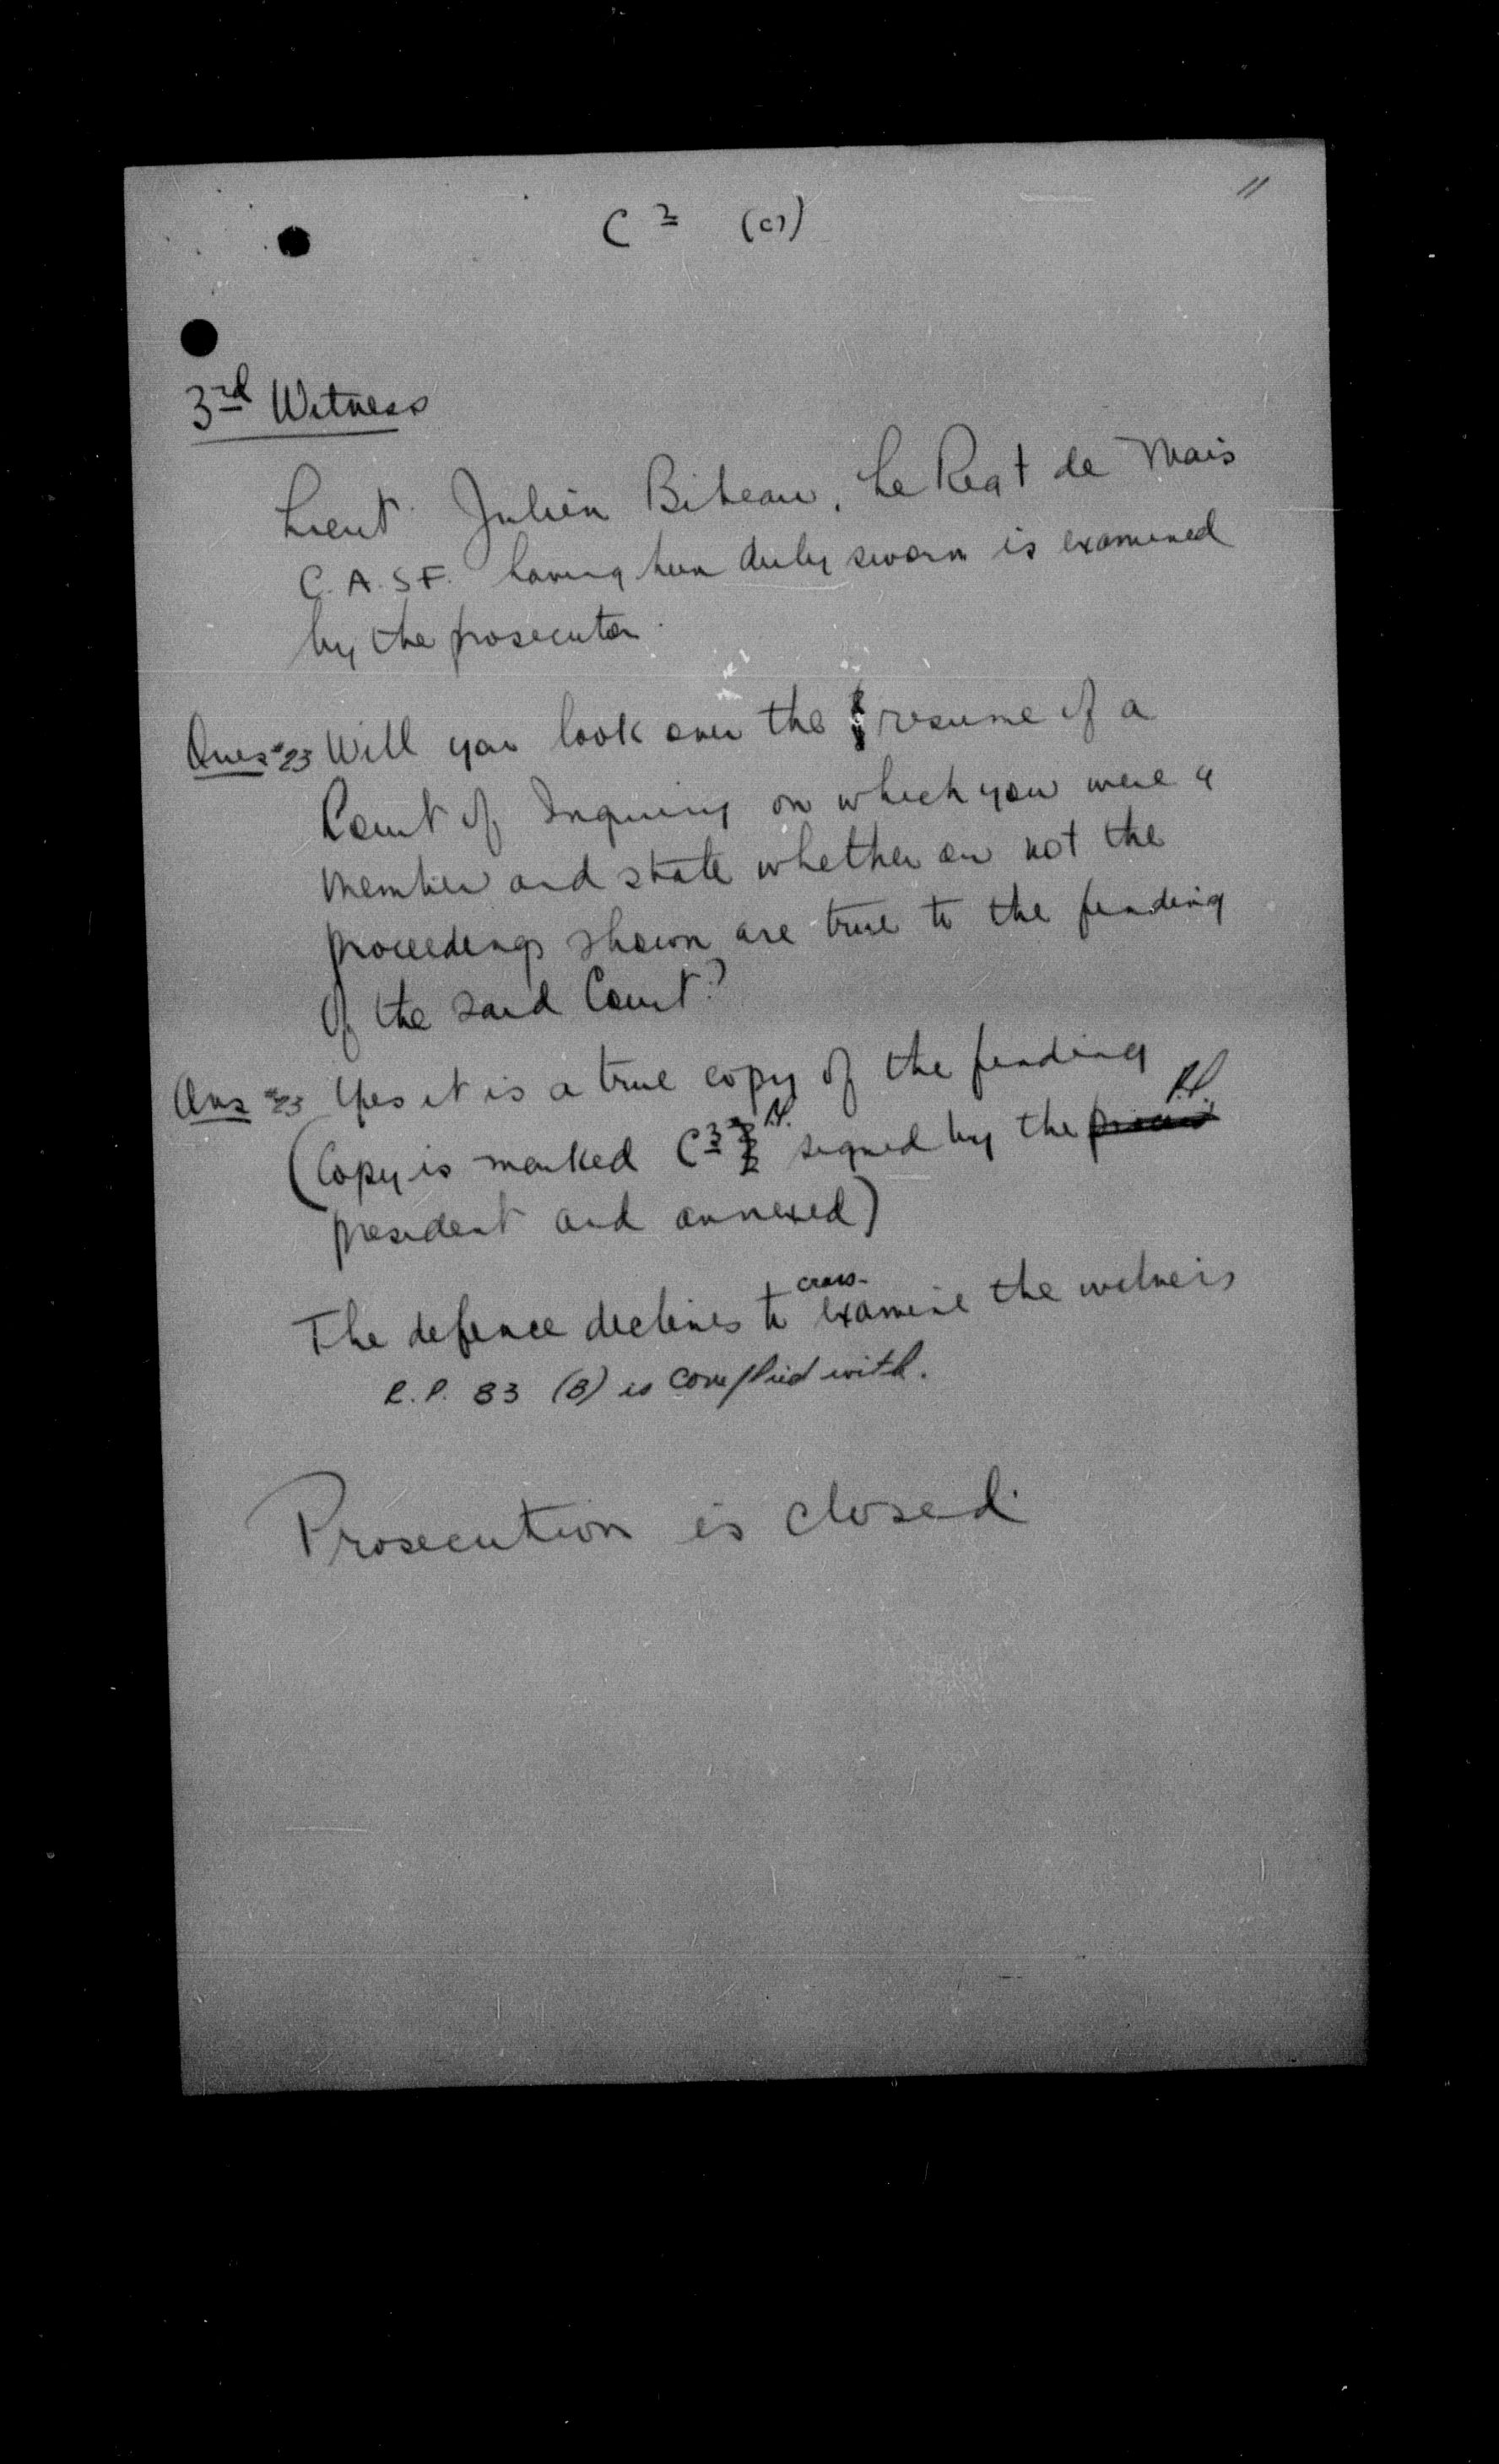 11
C 2 (c)
3rd Witness
Lieut. Julien Bibeau, Le Regt de Mais
C.A.S.F. having been duly sworn is examined
by the prosecutor.
Ques #23 Will you look over the resume of a
Court of Inquiry on which you were a
member and state whether or not the
proceedings shown are true to the finding
of the said Court?
Ans #23 Yes it is a true copy of the finding
(Copy is marked C3 signed by the
president and annexed)
The defence declines to cross-examine the witness
R.P. 83 (B) is complied with.
Prosecution is closed.